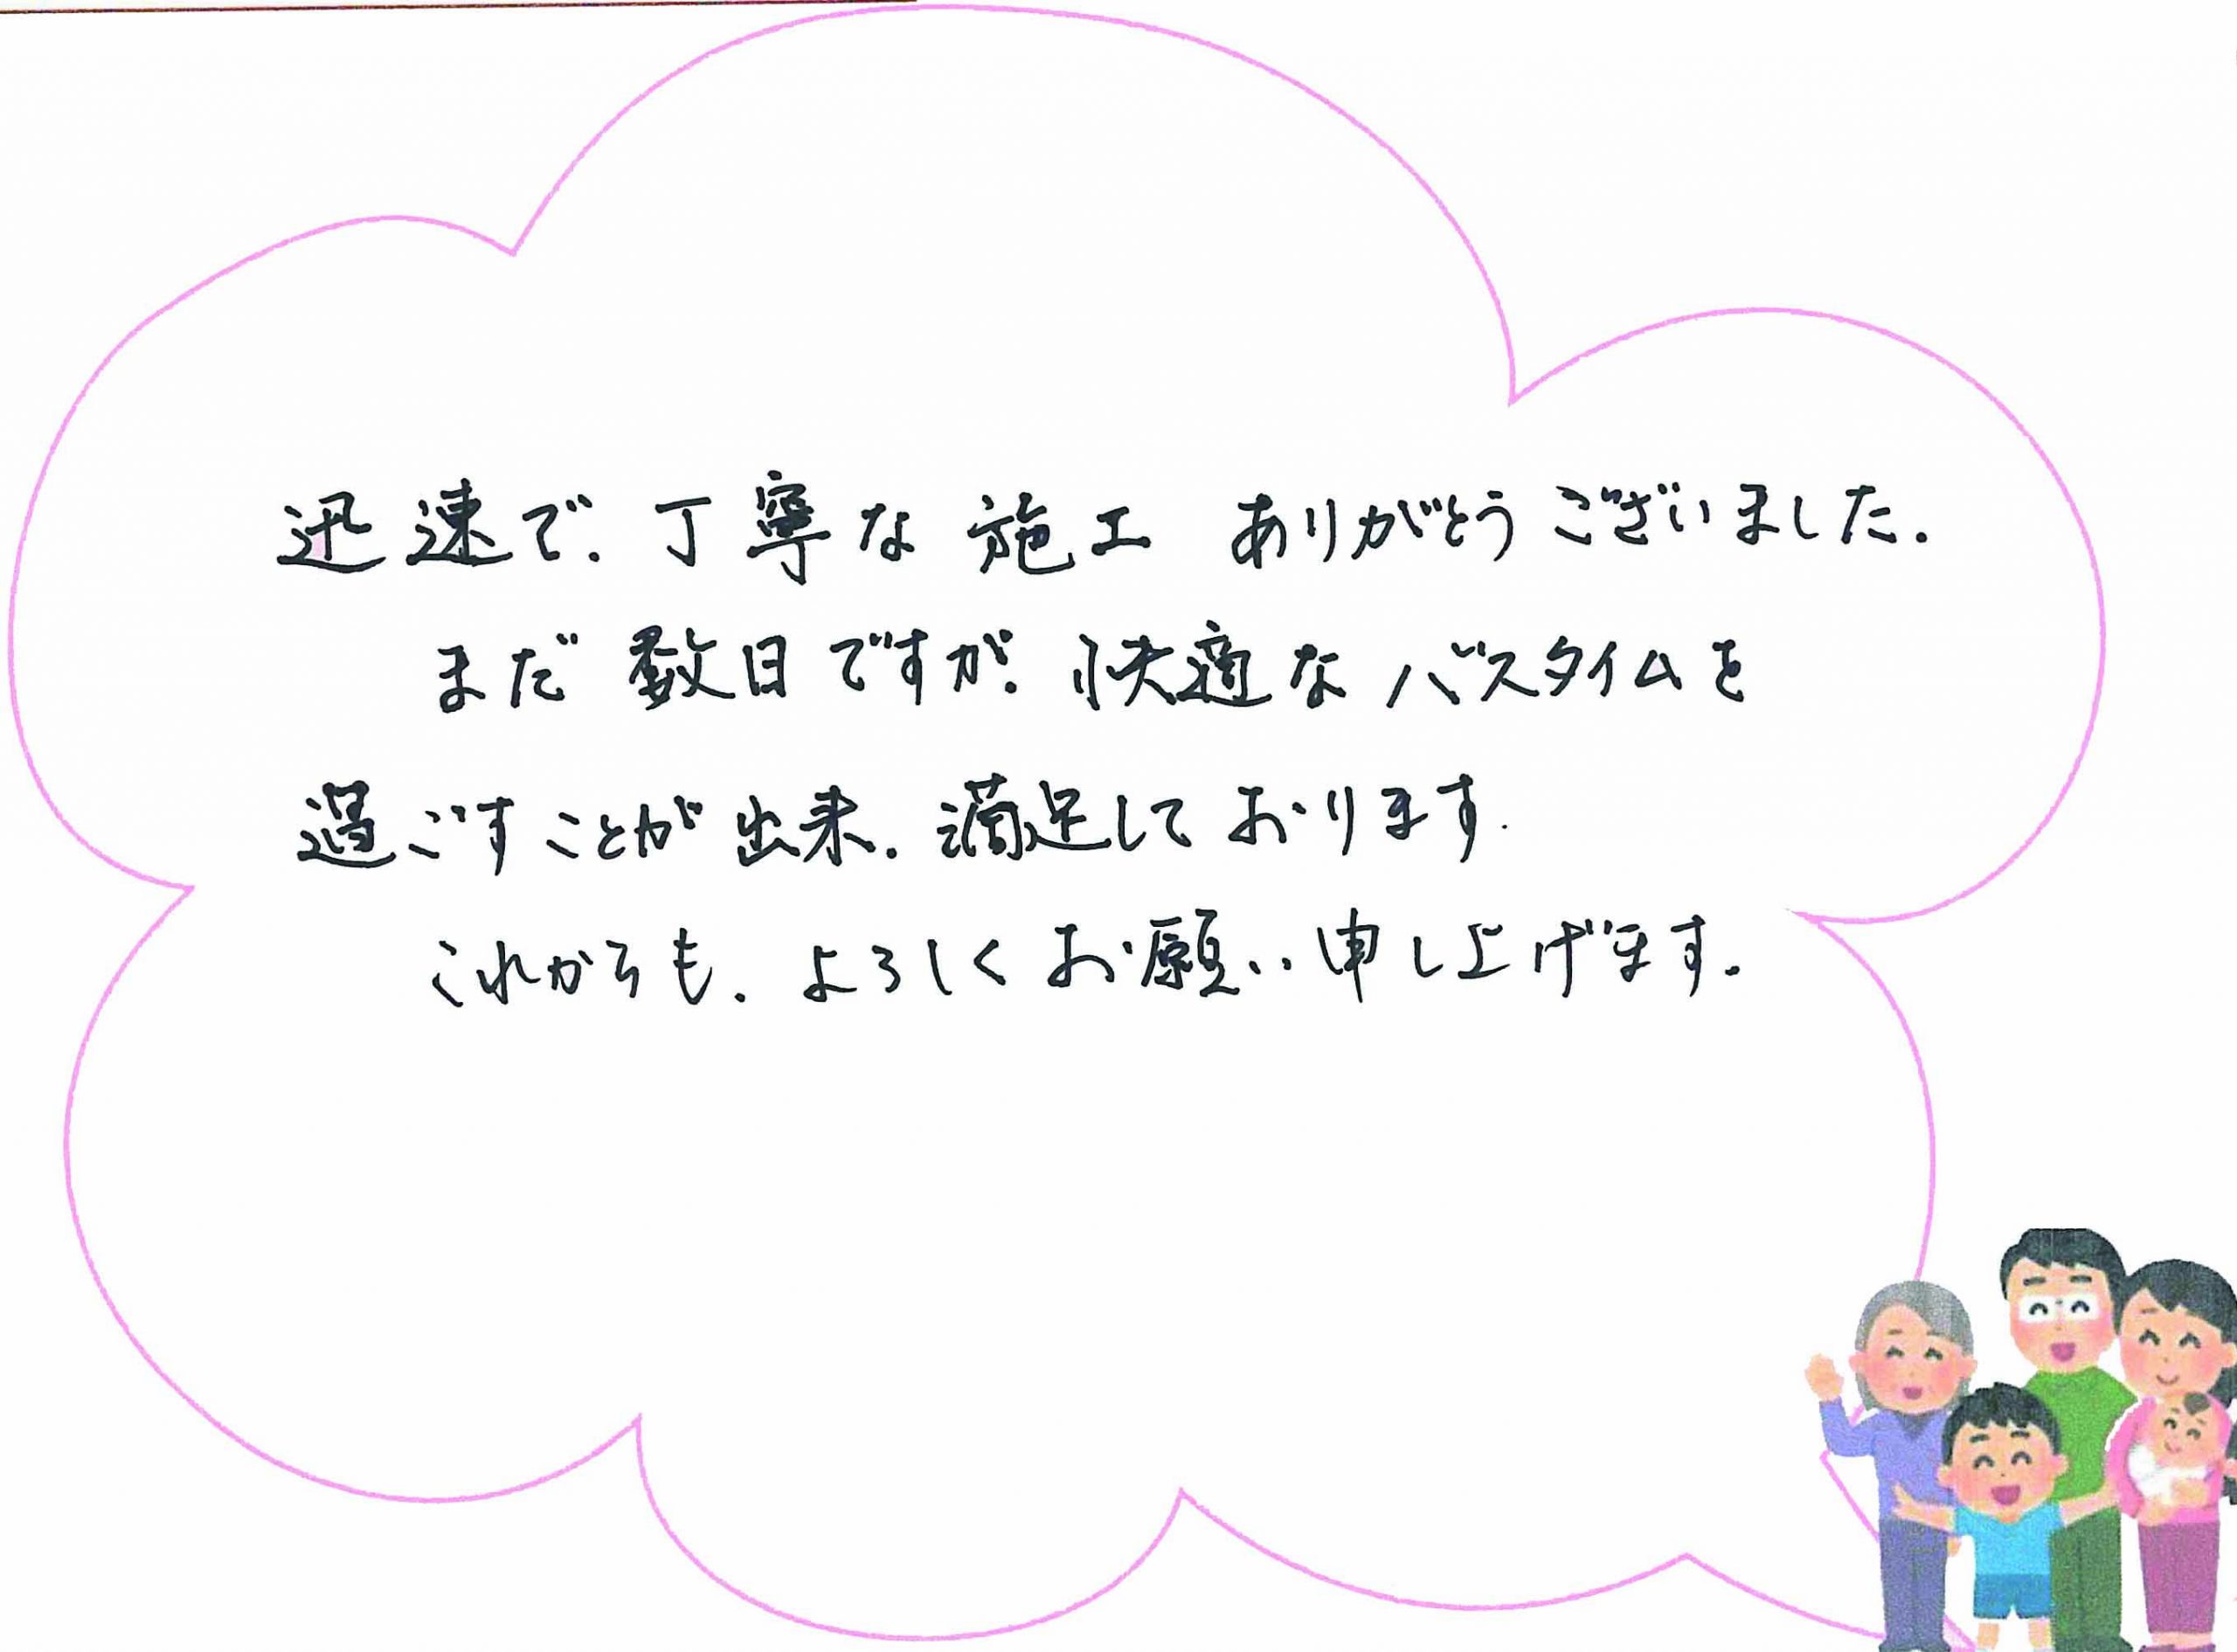 迅速で、丁寧な施工 ありがとうございました。
まだ数日ですが、快適なバスタイムを
過ごすことが出来、満足しております。
これからも、よろしくお願い申し上げます。